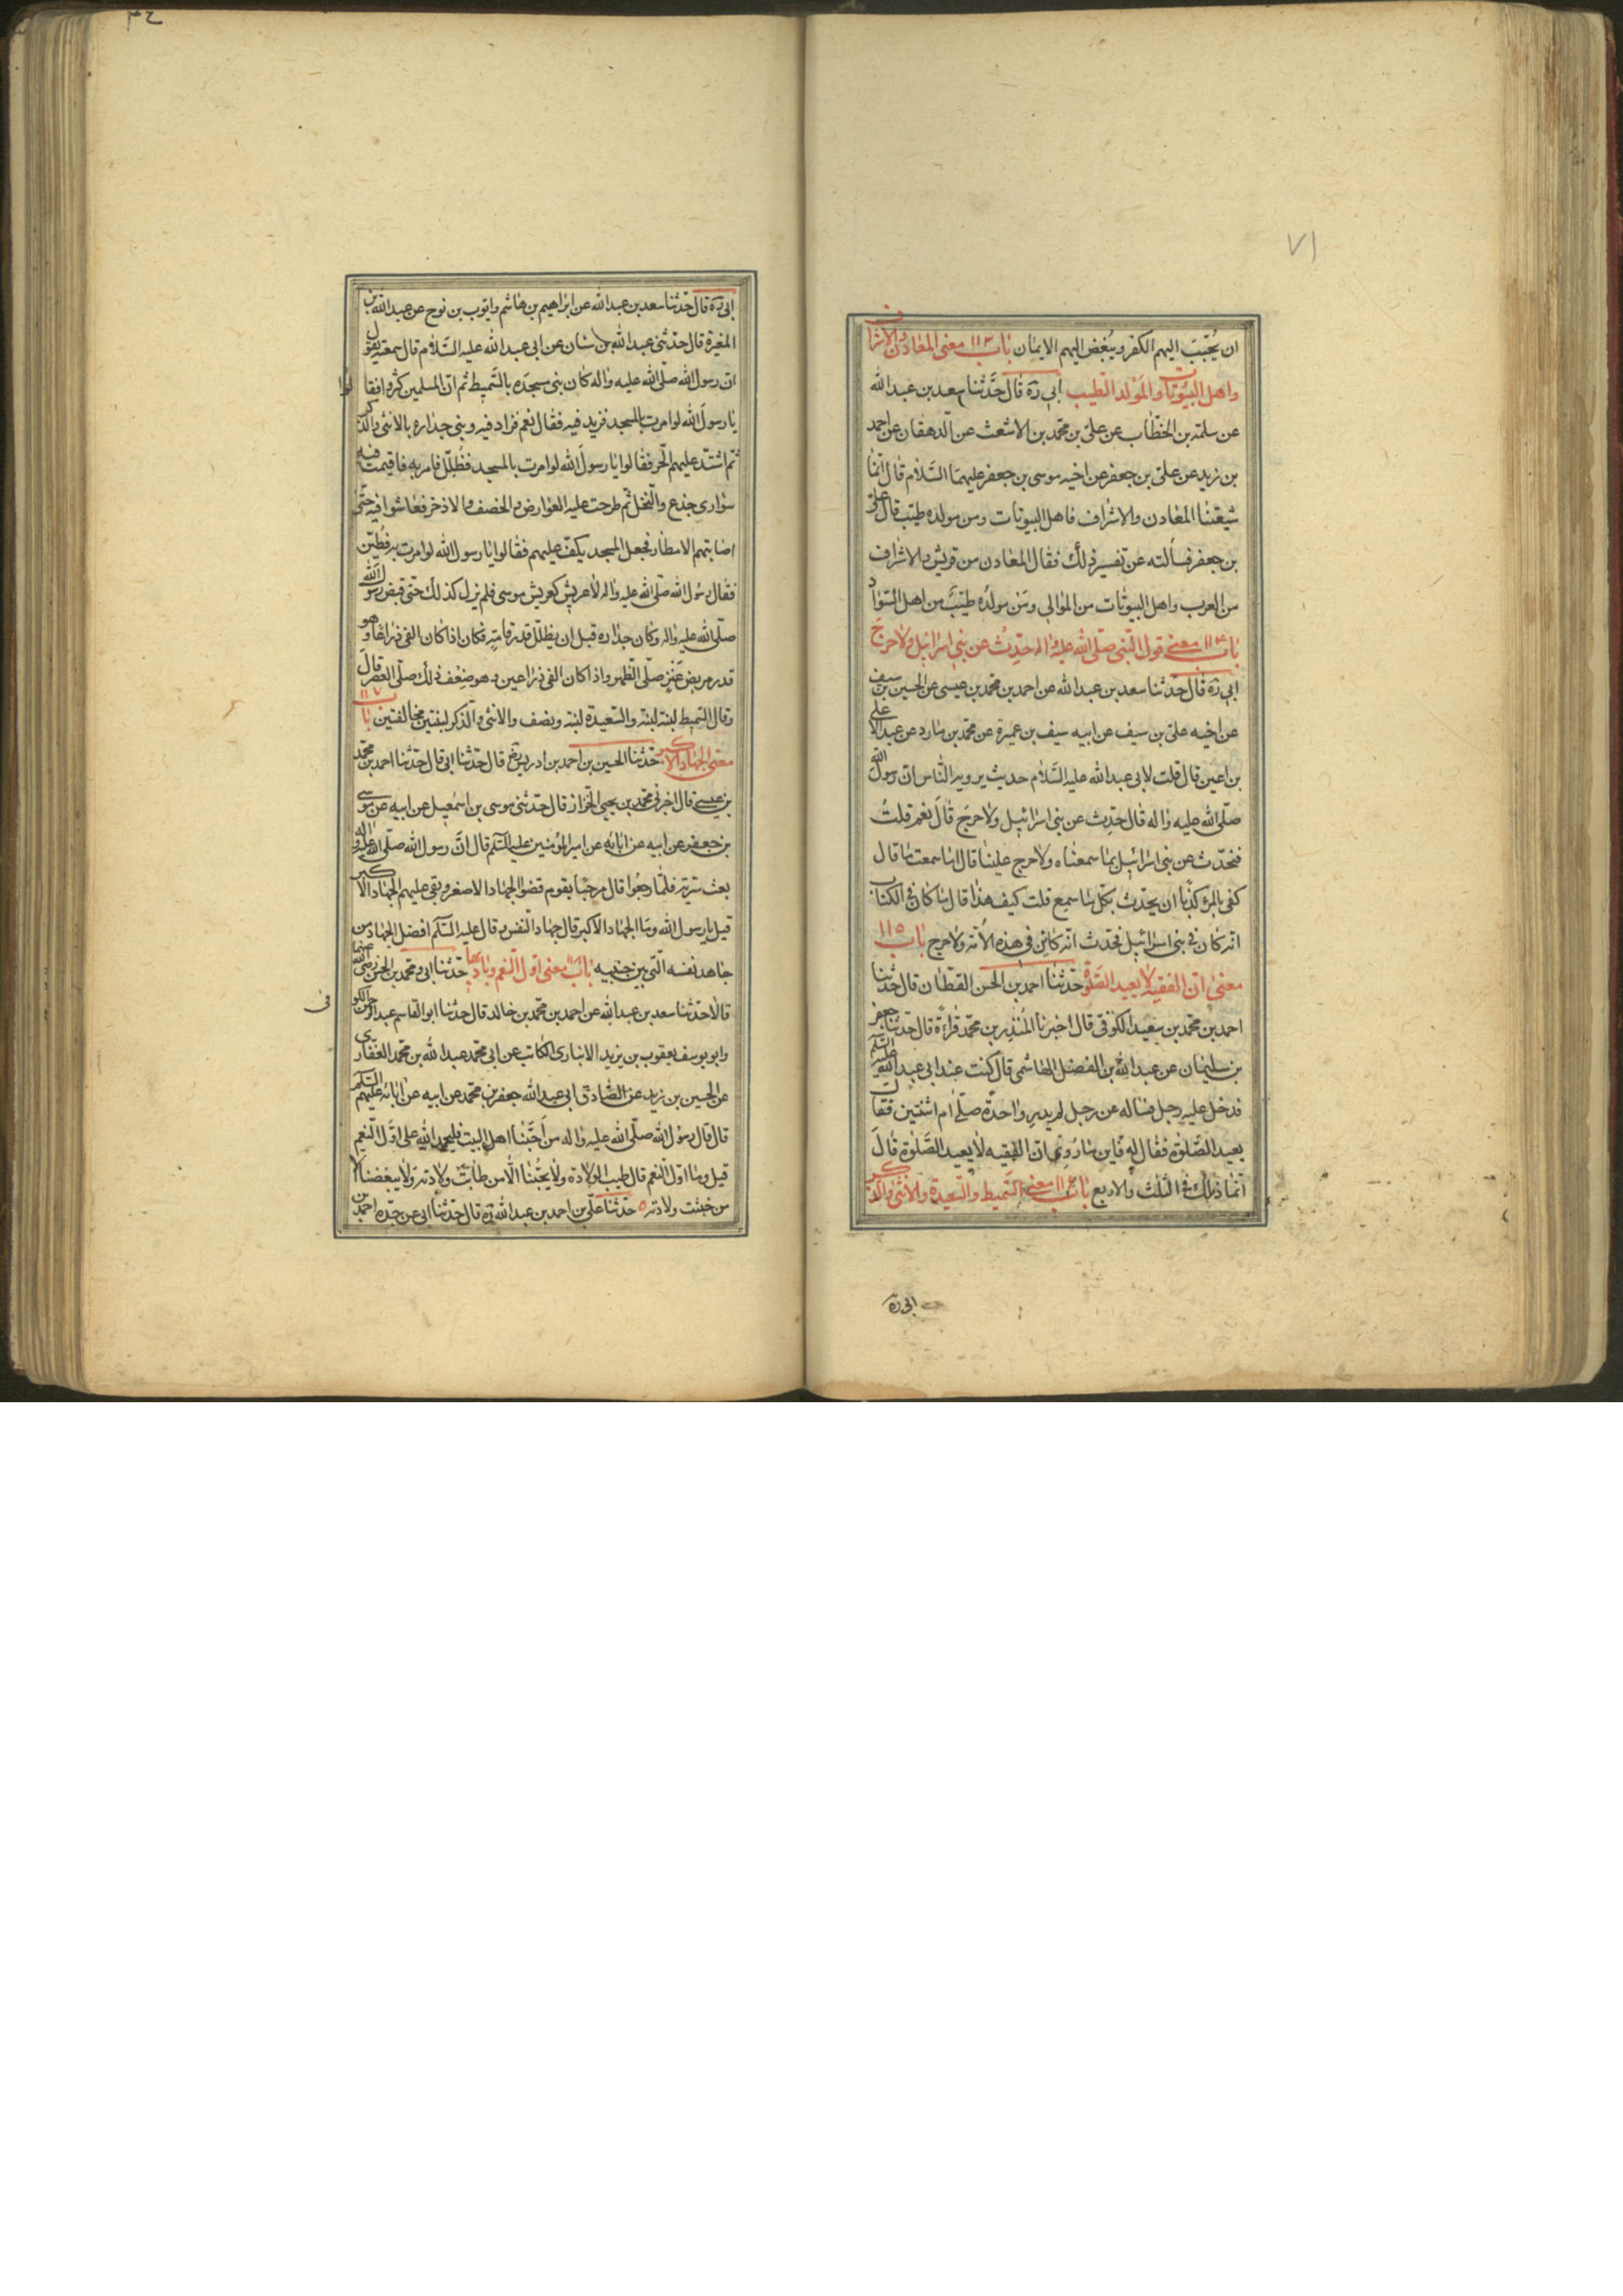 ٧١
ان يُحبّبَ اليهم الكفر ويُبغِض اليهم الايمان باب ١١٣ معنى المعادن والاشراف
واهل البيوتات والمَولد الطيب ابى ره قال حدّثنا سعد بن عبد الله
عن سلمة بن الخطّاب عن علىّ بن محمّد بن الاشعث عن الدهقان عن احمد
بن زيد عن علىّ بن جعفر عن اخيه موسى بن جعفر عليهما السّلام قال انّما
شيعتنا المعادن والاشراف فاهل البيوتات ومن مولده طيّب قال علىّ
بن جعفر فسألته عن تفسير ذلك فقال المعادن من قريش والاشراف
من العرب واهل البيوتات من الموالى ومَن مولدُه طيّبَ من اهل السّواد
باب ١١٤ معنى قول النّبى صلّى الله عليه واله حدّث عن بنى اسرائيل ولا حرجَ
ابى ره قال حدّثنا سعد بن عبد الله عن احمد بن محمّد بن عيسى عن الحسين بن سيف
عن اخيه علىّ بن سيف عن ابيه سيف بن عميرة عن محمّد بن مارد عن عبد الاعلى
بن اعين قال قلت لابى عبد الله عليه السّلام حديث يرويه النّاس انّ رسول الله
صلّى الله عليه واله قال حدِث عن بنى اسرائيل ولا حرجَ قالَ نعم قلتُ
فنحدّث عن بنى اسرائيل بما سمعناه ولا حرج علينا قال اما سمعت ما قال
كفى بالمرء كذباً ان يحدّث بكلّ ما سمع قلت كيف هذا قال ما كان فى الكتاب
انّه كان فى بنى اسرائيل فحدث انّه كائِن فى هذه الاُمّة ولا حرج باب ١١٥
معنى انّ الفقيه لا يعيد الصّلوة حدّثنا احمد بن الحسن القطّان قال حدّثنا
احمد بن محمّد بن سعيد الكوفى قال اخبرنا المُنذِر بن محمّد قراءةً قال حدّثنا جعفر
بن سليمان عن عبد الله بن الفضل الهاشمى قال كنت عند ابى عبد الله عليه السّلم
فدخل عليه رجل فساله عن رجل لم يدرِ واحدةً صلّى ام اثنتين فقال
يعيد الصّلوة فقال له فاين ما رُوِى انّ الفقيه لا يعيد الصّلوة قالَ
انّما ذلك فى الثلث والاربع باب ١١٦ معنى السّميط والسّعيدة والانثى والذكر
ابى ره
ابى ره قال حدّثنا سعد بن عبد الله عن ابراهيم بن هاشم وايّوب بن نوح عن عبد الله بن
المغيرة قال حدّثنى عبد الله بن سنان عن ابى عبد الله عليه السّلام قال سمعته يقول
انّ رسول الله صلّى الله عليه واله كان بنى مسجده بالسّميط ثم انّ المسلمين كثروا فقالوا
يا رسول الله لو امرت بالمسجد فزيد فيه فقال نعم فزاد فيه وبنى جداره بالانثى والذكر
ثمّ اشتدّ عليهم الحر فقالوا يا رسول الله لو امرت بالمسجد فظُلّل فامر به فاقيمت فيه
سوارى جذع والنّخل ثم طرحت عليه العوارض والخصف والاذخر فعاشوا فيه حتّى
اصابتهم الامطار فجعل المسجد يكف عليهم فقالوا يا رسول الله لو امرت به فطيّن
فقال رسول الله صلّى الله عليه واله لا عريش كعريش موسى فلم يزل كذلك حتّى قبض رسول الله
صلّى الله عليه واله وكان جداره قبل ان يظلّل قدر قامته فكان اذا كان الفى ذراعا وهو
قدر مربض عَنزٍ صلّى الظهر واذا كان الفى ذراعين وهو ضِعْف ذلك صلّى العصر قال
وقال السّميط لبنة لبنة والسّعيدة لبنة ونصف والانثى والذكر لبنتين مخالفتين باب ١١٧
معنى الجهاد الاكبر حدّثنا الحسين بن احمد بن ادريس قال حدّثنا ابى قال حدّثنا احمد بن محمّد
بن عيسى قال اخبرنى محمّد بن يحيى الخزاز قال حدّثنى موسى بن اسمعيل عن ابيه عن موسى
بن جعفر عن ابيه عن ابائه عن امير المؤمنين عليه السّلم قال انّ رسول الله صلّى الله عليه واله
بعث سَريّة فلمّا رجعُوا قال مرحبًا بقوم قضوا الجهاد الاصغر وبقى عليهم الجهاد الاكبر
قيل يا رسول الله وما الجهاد الاكبر قال جهاد النّفس وقال عليه السّلم افضل الجهاد من
جاهد نفسه الّتى بين جنبيه باب ١١٨ معنى اوّل النّعم وباديها حدّثنا ابى ومحمّد بن الحسن رضى الله عنهما
قالا حدّثنا سعد بن عبد الله عن احمد بن محمّد بن خالد قال حدّثنا ابو القاسم عبد الرّحمن الكوفى
وابو يوسف يعقوب بن يزيد الانبارى الكاتب عن ابى محمّد عبد الله بن محمّد الغفّارى
عن الحسين بن زيد عن الصّادق ابى عبد الله جعفر بن محمّد عن ابيه عن ابائه عليهم السّلم
قال قال رسول الله صلّى الله عليه واله من اَحَبّنا اهل البيت فليحمد الله على اوّل النّعم
قيل وما اوّل النّعم قال طيب الولادة ولا يحُبّنا الّا من طابت ولادته ولا يبغضنا الا
من خبثت ولادته حدّثنا علىّ بن احمد بن عبد الله ره قال حدّثنا ابى عن جدّه احمد بن